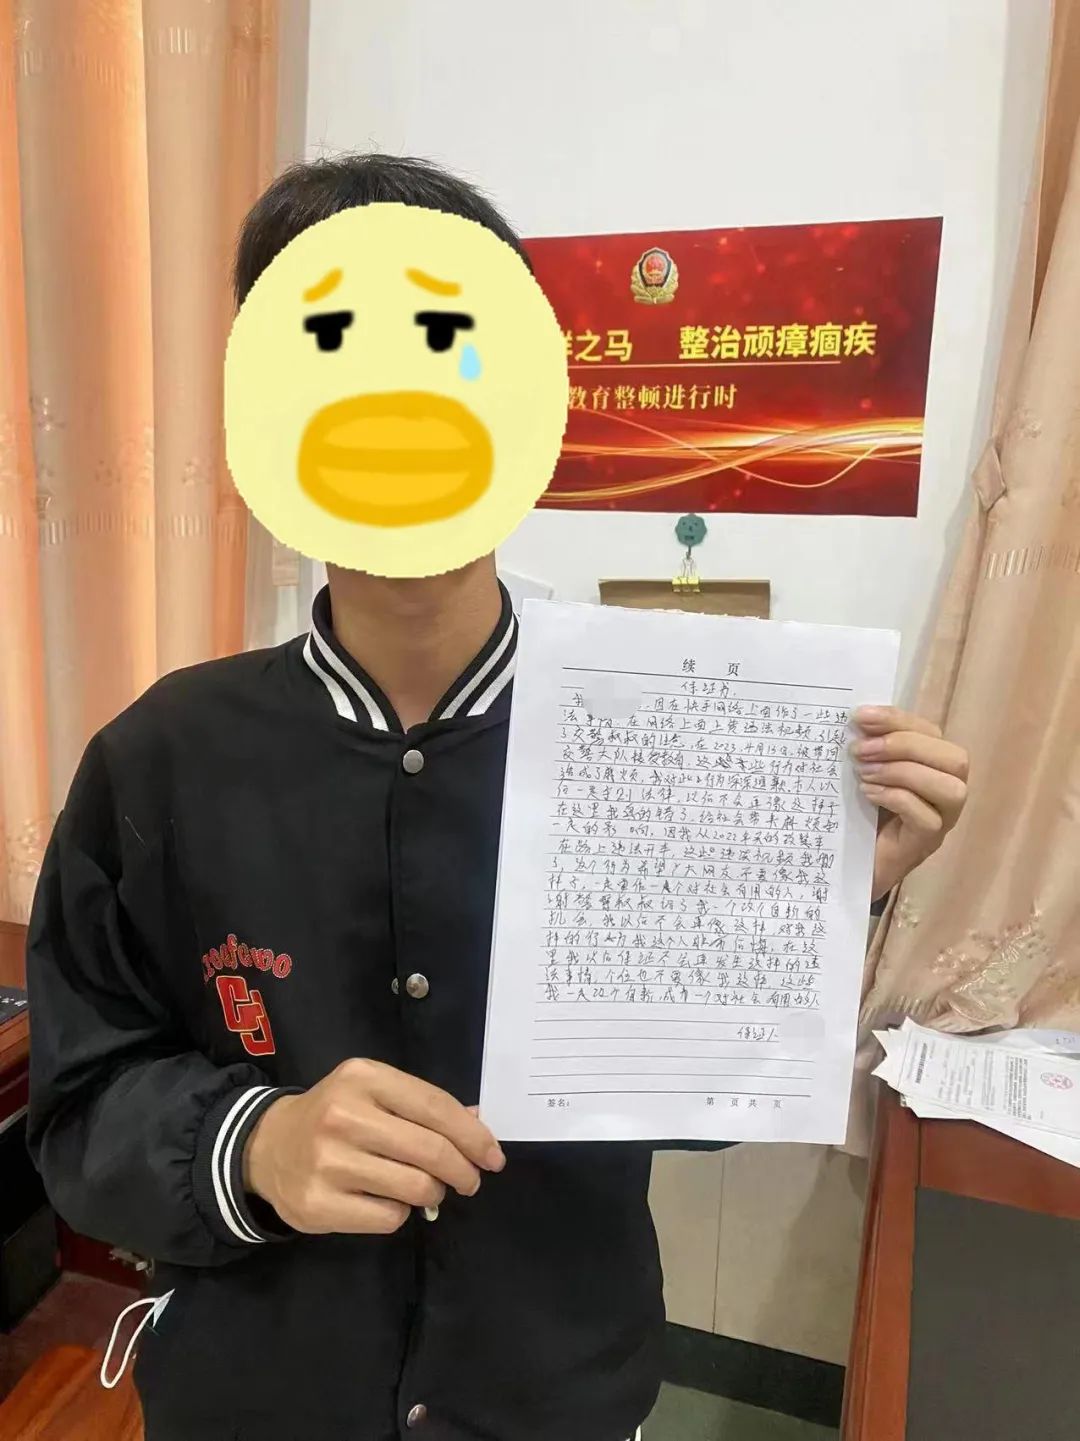 群之马 整治顽瘴痼疾
教育整顿进行时
续 页
保证书.
我 , 因在快手网络上面作了一些违
法事情, 在网络上面上发违法视频, 引起
了交警叔叔的注意, 在2023.4月13日, 被带回
交警大队接受教育, 这些 行为对社会
造成了麻烦, 我对此行为深深道歉, 本人以
后一定守则法律, 以后不会再像这样子
在这里我真的错了, 给社会带来麻烦和
一定的影响, 因我从2022年买的改装车
在路上违法开车, 这些违法视频我
了, 这个行为希望广大网友不要像我这
样子, 一定要作一个对社会有用的人, 谢
谢警察叔叔给了我一个改个自新的
机会, 我以后不会再像这样 对我这
样的行为我这个人非常后悔, 在这
里我以后保证不会再发生这样的违
法事情, 个位也不要像我这样, 这些
我一定改个自新, 成为一个对社会有用的人
保证人
签名:
第 页 共 页